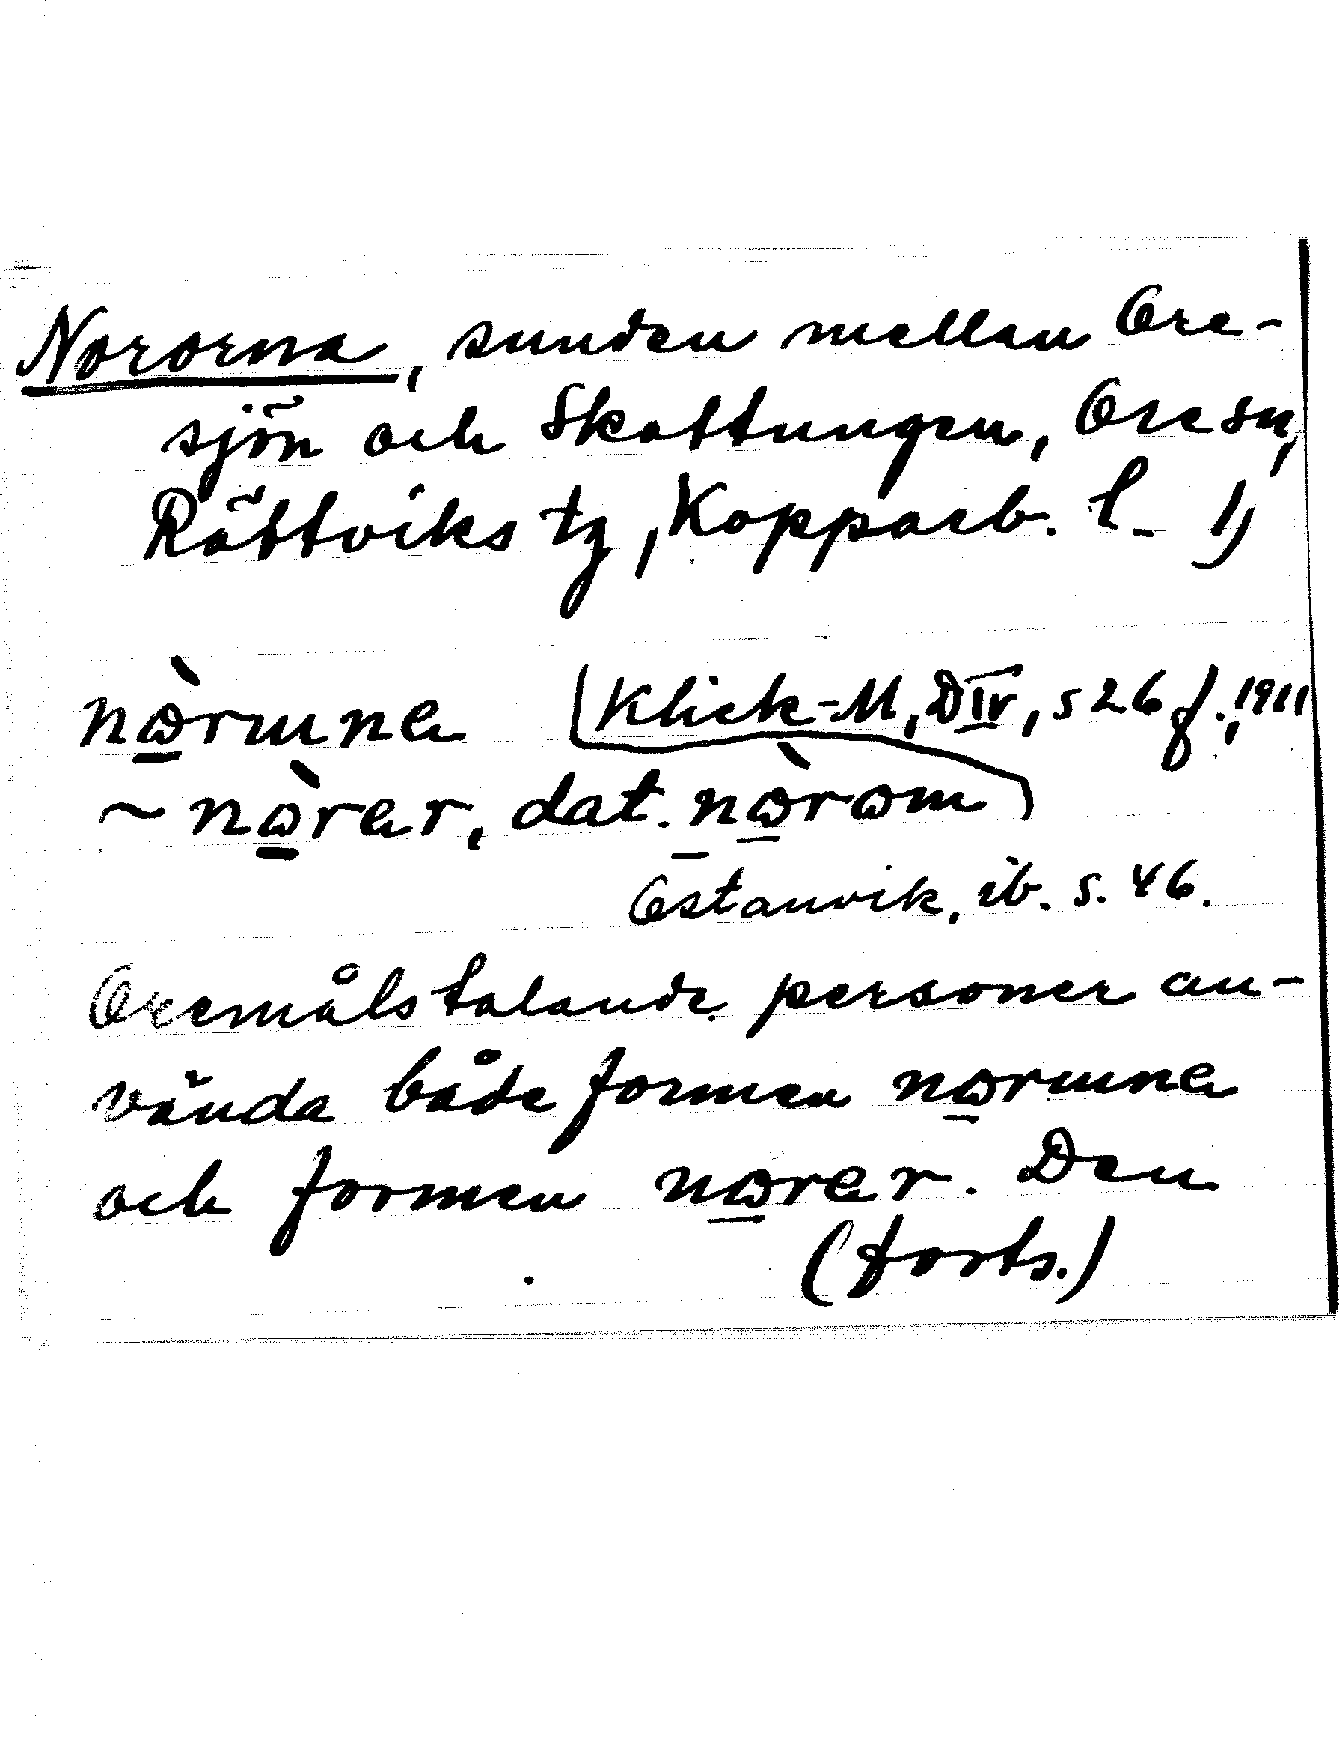 Nororna, sunden mellan Ore-
sjön och Skattungen, Ore sn,
Rättviks tg, Kopparb. l. 1)
nòrunna [Klick-M, D IV, s 26 f., 1911
~ nòrer, dat. nòrom
Östanvik, ib. s. 46.
Oremålstalande personer an-
vända både formen norunna
och formen norer. Den
(forts.)